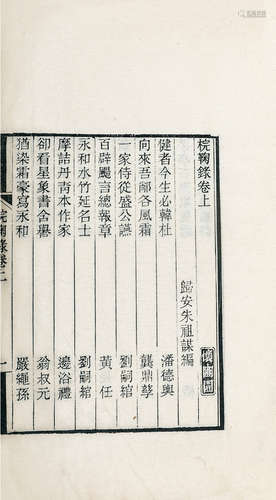 梡鞠錄卷上
歸安朱祖謀編
健者今生必韓杜 潘德輿
向來吾郡各風霜 龔鼎孳
一家侍從盛公讌 劉嗣綰
百辟颺言總報章 黃任
永和水竹延名士 劉嗣綰
摩詰丹青本作家 邊浴禮
卻看星象書金櫐 翁叔元
猶染霜豪寫永和 嚴繩孫
梡鞠錄卷上
一